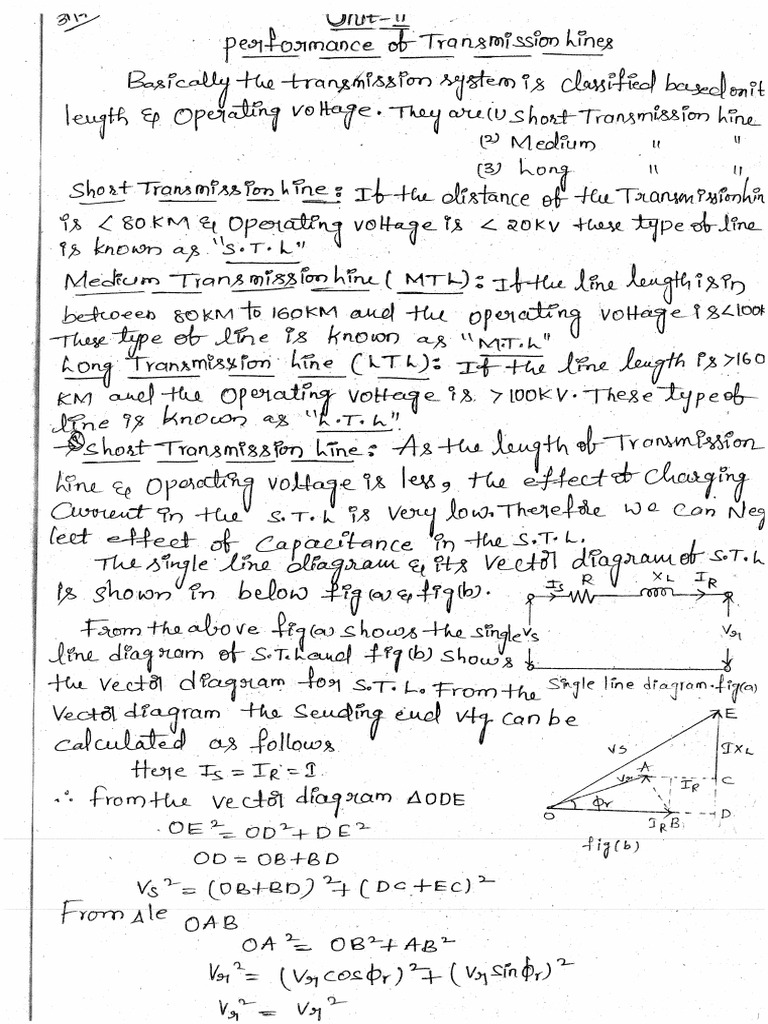 Unit-II
performance of Transmission Lines
Basically the transmission system is classified based on it
length & Operating voltage. They are (1) Short Transmission Line
(2) Medium " "
(3) Long " "
Short Transmission Line: If the distance of the Transmission Lin
is < 80KM & Operating voltage is < 20KV these type of line
is known as "S.T.L"
Medium Transmission Line (MTL): If the line length is in
between 80KM to 160KM and the operating voltage is <100K
These type of line is known as "M.T.L"
Long Transmission Line (LTL): If the line length is >160
KM and the Operating voltage is >100KV. These type of
line is known as "L.T.L"
Short Transmission Line: As the length of Transmission
Line & Operating voltage is less, the effect of Charging
Current in the S.T.L is very low. Therefore we can Neg
lect effect of Capacitance in the S.T.L.
The single line diagram & its Vector diagram of S.T.L
is shown in below fig(a) & fig(b).
Is R XL IR
Vs Vr
From the above fig(a) shows the single
line diagram of S.T.L and fig(b) shows
the vector diagram for S.T.L. From the
Single line diagram. fig(a)
Vector diagram the Sending end vtg can be
calculated as follows
Here Is = IR = I
∴ from the vector diagram ΔODE
E
Vs
IXL
A
Vr
IR
C
O
φr
IR B
D
fig(b)
OE² = OD² + DE²
OD = OB + BD
Vs² = (OB+BD)² + (DC+EC)²
From Δle OAB
OA² = OB² + AB²
Vr² = (Vr cosφr)² + (Vr sinφr)²
Vr² = Vr²